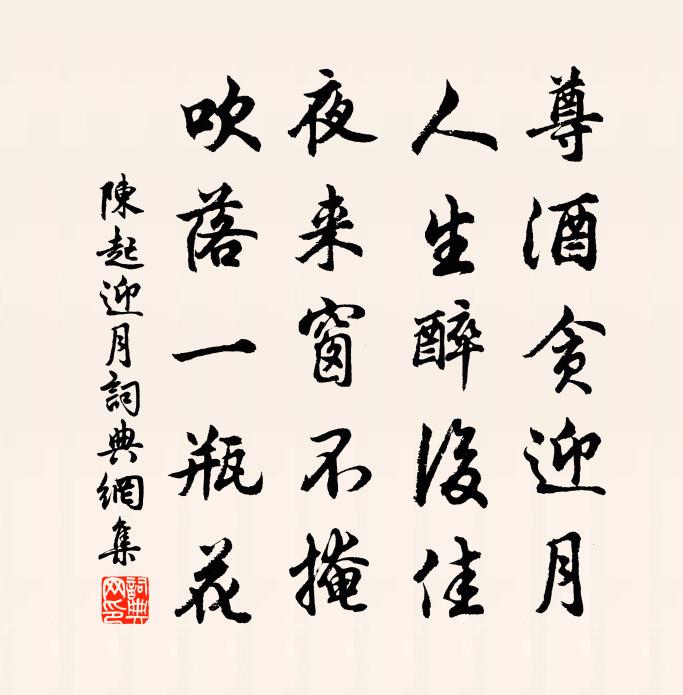 尊酒貪迎月
人生醉後佳
夜来窗不掩
吹落一瓶花
陳起迎月詞典網集
詞典網印